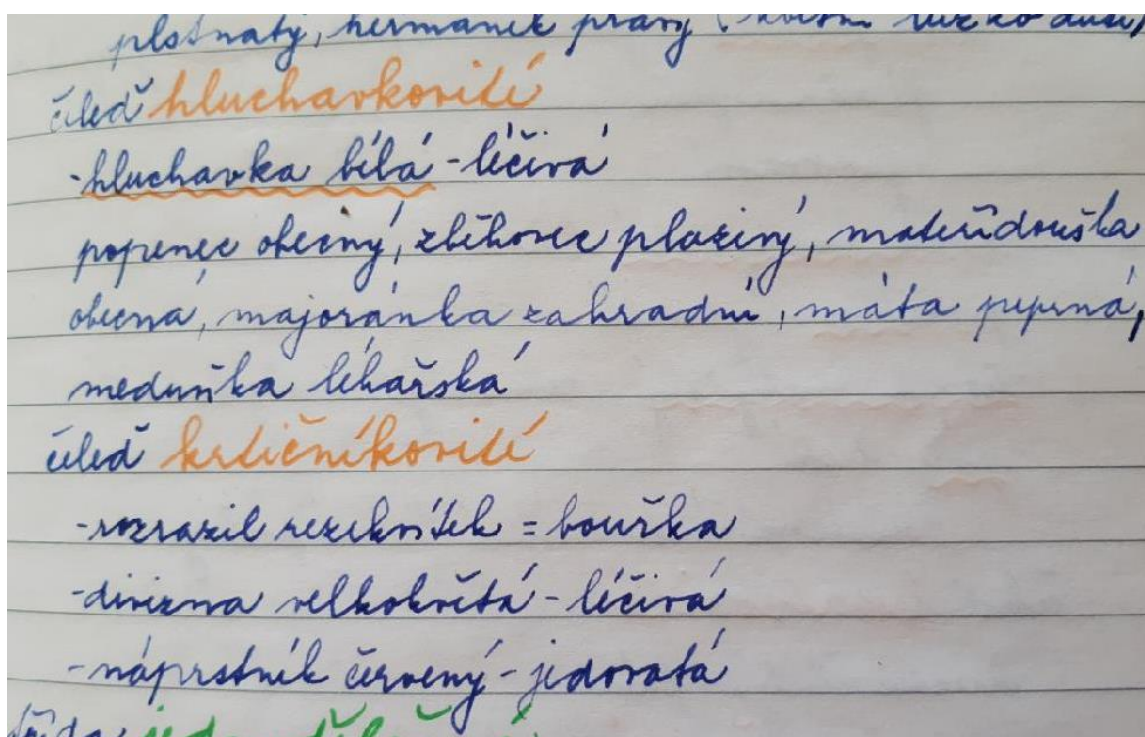 plstnatý, heřmánek pravý (
čeleď hluchavkovité
-hluchavka bílá - léčivá
popenec obecný, zběhovec plazivý, mateřídouška
obecná, majoránka zahradní, máta peprná,
meduňka lékařská
čeleď krtičníkovité
-rozrazil rezekvítek = bouřka
-divizna velkokvětá - léčivá
-náprstník červený - jedovatá